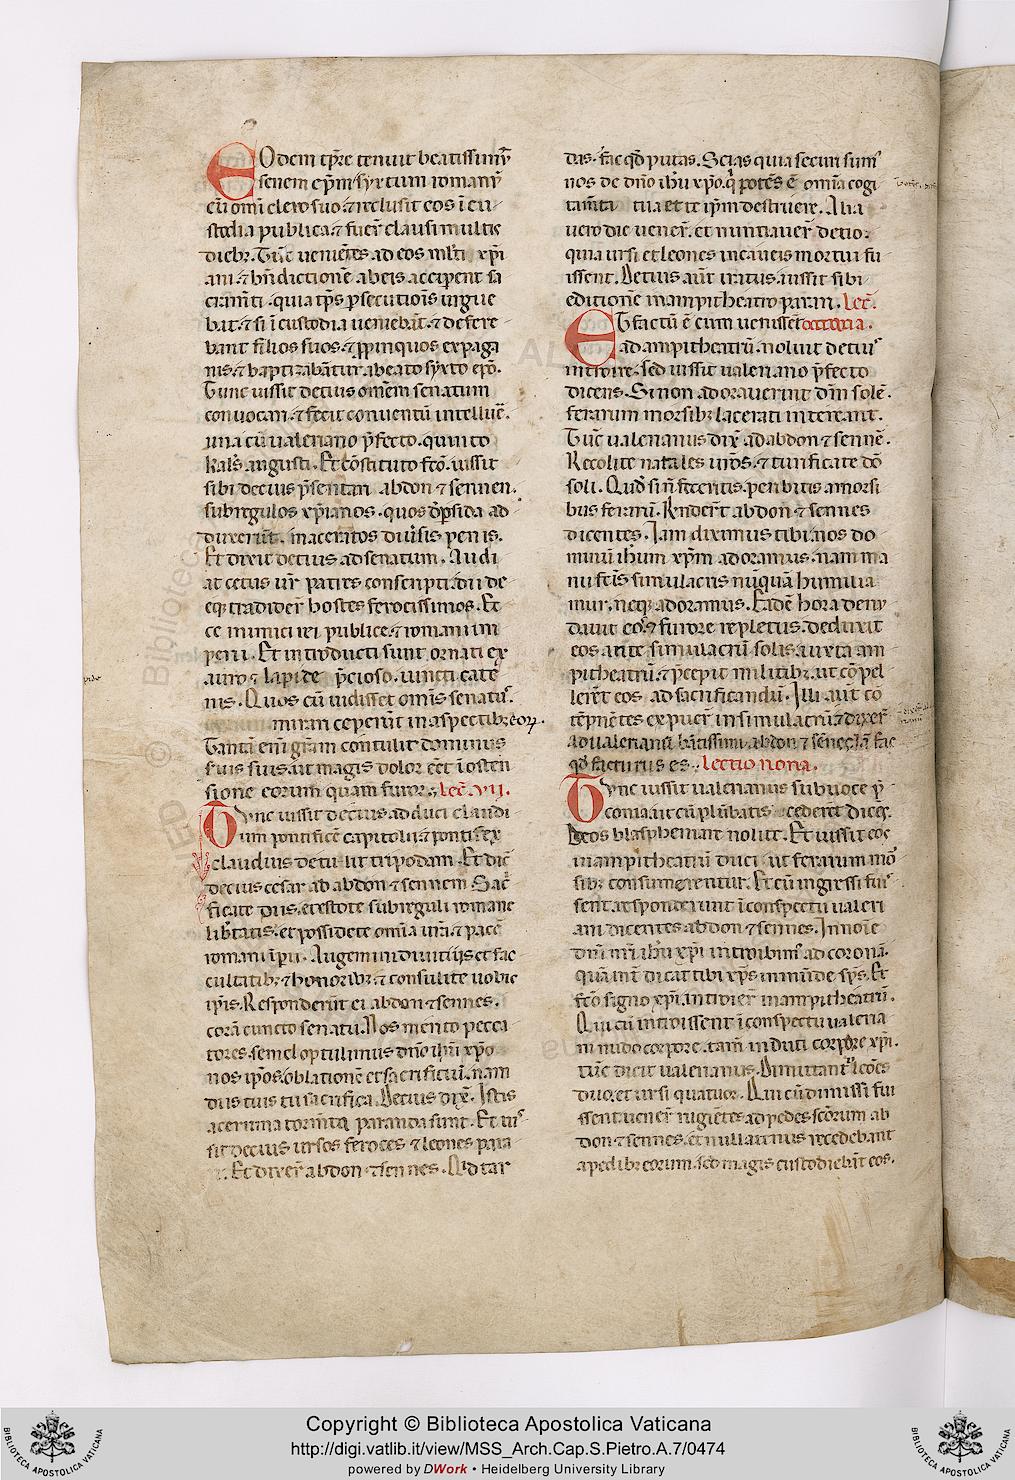 EOdem tp̄re tenuit beatissimū
senem ep̄m syxtum romanū
cū om̄i clero suo. ⁊ reclusit eos ī cu
stodia publica. ⁊ fuer̄ clausi multis
dieb;. Tūc uenientes ad eos ml̄ti xp̄i
ani. ⁊ bn̄dictionē ab eis acciperent sa
cram̄ti. quia tp̄s p̄secutiōis urgue
bat. ⁊ si ī custodia ueniebāt. ⁊ defere
bant filios suos. ⁊ p̄pinquos ex paga
nis. ⁊ baptizabāntur. a beato syxto ep̄o.
Tunc iussit decius om̄em senatum
conuocari. ⁊ fecit conuentū in telluē.
una cū ualeriano p̄fecto. quinto
kal̄s augusti. Et cōstituto fc̄o. iussit
sibi decius p̄sentari abdon ⁊ sennen.
subregulos xp̄ianos. quos a p̄sida ad
duxerūt. in aceritos diūsis penis.
Et dixit decius ad senatum. Audi
at cetus ur̄ patres conscripti. dii de
eq; tradider̄ hostes ferocissimos. Ec
ce inimici rei publice. ⁊ romani im
perii. Et introducti sunt ornati ex
auro ⁊ lapide p̄cioso. uincti cate
nis. Quos cū uidisset om̄is senatus.
mirari ceperūt in aspectib; eoꝝ.
Tantā eni gr̄am contulit dominus
suis suis. ut magis dolor eēt ī osten
sione eorum quam furor. lec̄. vii.
TVnc iussit decius adduci claudi
um pontificē capitolii. ⁊ pontifex
claudius detulit tripodam. Et dic̄
decius cesar ad abdon ⁊ sennem. Sac̄
ficate diis. ⁊ estote subreguli romane
lib̄tatis. et possidete omīa ur̄a ⁊ pacē
romani īp̄ii. Augemini diuitiis et fac
cultatib; ⁊ honorib;. ⁊ consulite uobis
ip̄is. Responderūt ei abdon ⁊ sennes.
corā cuncto senatu. Nos merito pecca
tores. semel optulimus dn̄o ih̄u xp̄o
nos ip̄os. oblationē et sacrificiū. nam
diis tuis tu sacrifica. Decius dix̄. Istis
acerrima torm̄ta paranda sunt. Et ius
sit decius ursos feroces ⁊ leones para
ri. Et dixer̄ abdon ⁊ sennes. Ad tar
das. fac qd̄ putas. Scias quia securi sumus
nos de dn̄o ih̄u xp̄o. qi potēs ē omīa cogi
tam̄ti tua et te ip̄m destruere. Alia
uero die uener̄. et nuntiauer̄ decio.
quia ursi et leones in caueis mortui fu
issent. Decius aūt iratus. iussit sibi
editionē in ampitheatro parari. lec̄.
ET factū ē cum uenisset octaua.
ad ampitheatrū. noluit decius
introire. sed iussit ualeriano p̄fecto
dicens. Si non adorauerint dm̄ solē.
ferarum morsib; lacerati intereant.
Tūc ualerianus dix̄. ad abdon ⁊ sennē.
Recolite natales ur̄os. ⁊ turificate dō
soli. Quō si n̄ feceritis. peribitis a morsi
bus ferarū. Rn̄dert abdon ⁊ sennes
dicentes. Iam diximus tibi. nos do
minū ih̄um xp̄m adoramus. nam ma
nu fcīs simulacris nūquā humilia
mur. neq; adoramus. Eadē hora denu
dauit eos. ⁊ furore repletus. deduxit
eos ante simulacrū solis. iuxta am
pitheatrū. ⁊ p̄cepit militib; ut cō pel
lerēt eos. ad sacrificandū. Illi aūt cō
tēpnētes expuer̄ in simulacrū. ⁊ dixer̄
ad ualerianū. fac
qd̄ facturus es. lectio nona.
TVnc iussit ualerianus sub uoce p̄
conia. ut cū plūbatis cederēt dicēs.
Deos blasphemari nolite. Et iussit eos
in ampitheatrū duci ut ferarum mor
sib; consumerentur. Et cū ingressi fuis
sent. responderunt ī conspectu ualeri
ani dicentes abdon ⁊ sennes. In noīe
dn̄i nr̄i ih̄u xp̄i introibimus ad coronā.
quā inē dicat tibi xp̄s inmūde sp̄s. Et
fc̄o signo xp̄i. introier̄ in ampitheatrū.
Qui cū introissent ī conspectu ualeria
ni nudo corpore. tam̄ induti corpore xp̄i.
tūc dicit ualerianus. Dimittantur leōes
duo. et ursi quatuor. Qui cū dimissi fui
ssent. uener̄ rugiētes ad pedes scōrum ab
don ⁊ sennes. et nullatinus recedebant
a pedib; eorum. sed magis custodiebāt eos.
Copyright © Biblioteca Apostolica Vaticana
http://digi.vatlib.it/view/MSS_Arch.Cap.S.Pietro.A.7/0474
powered by DWork • Heidelberg University Library
BIBLIOTECA APOSTOLICA VATICANA
BIBLIOTECA APOSTOLICA VATICANA